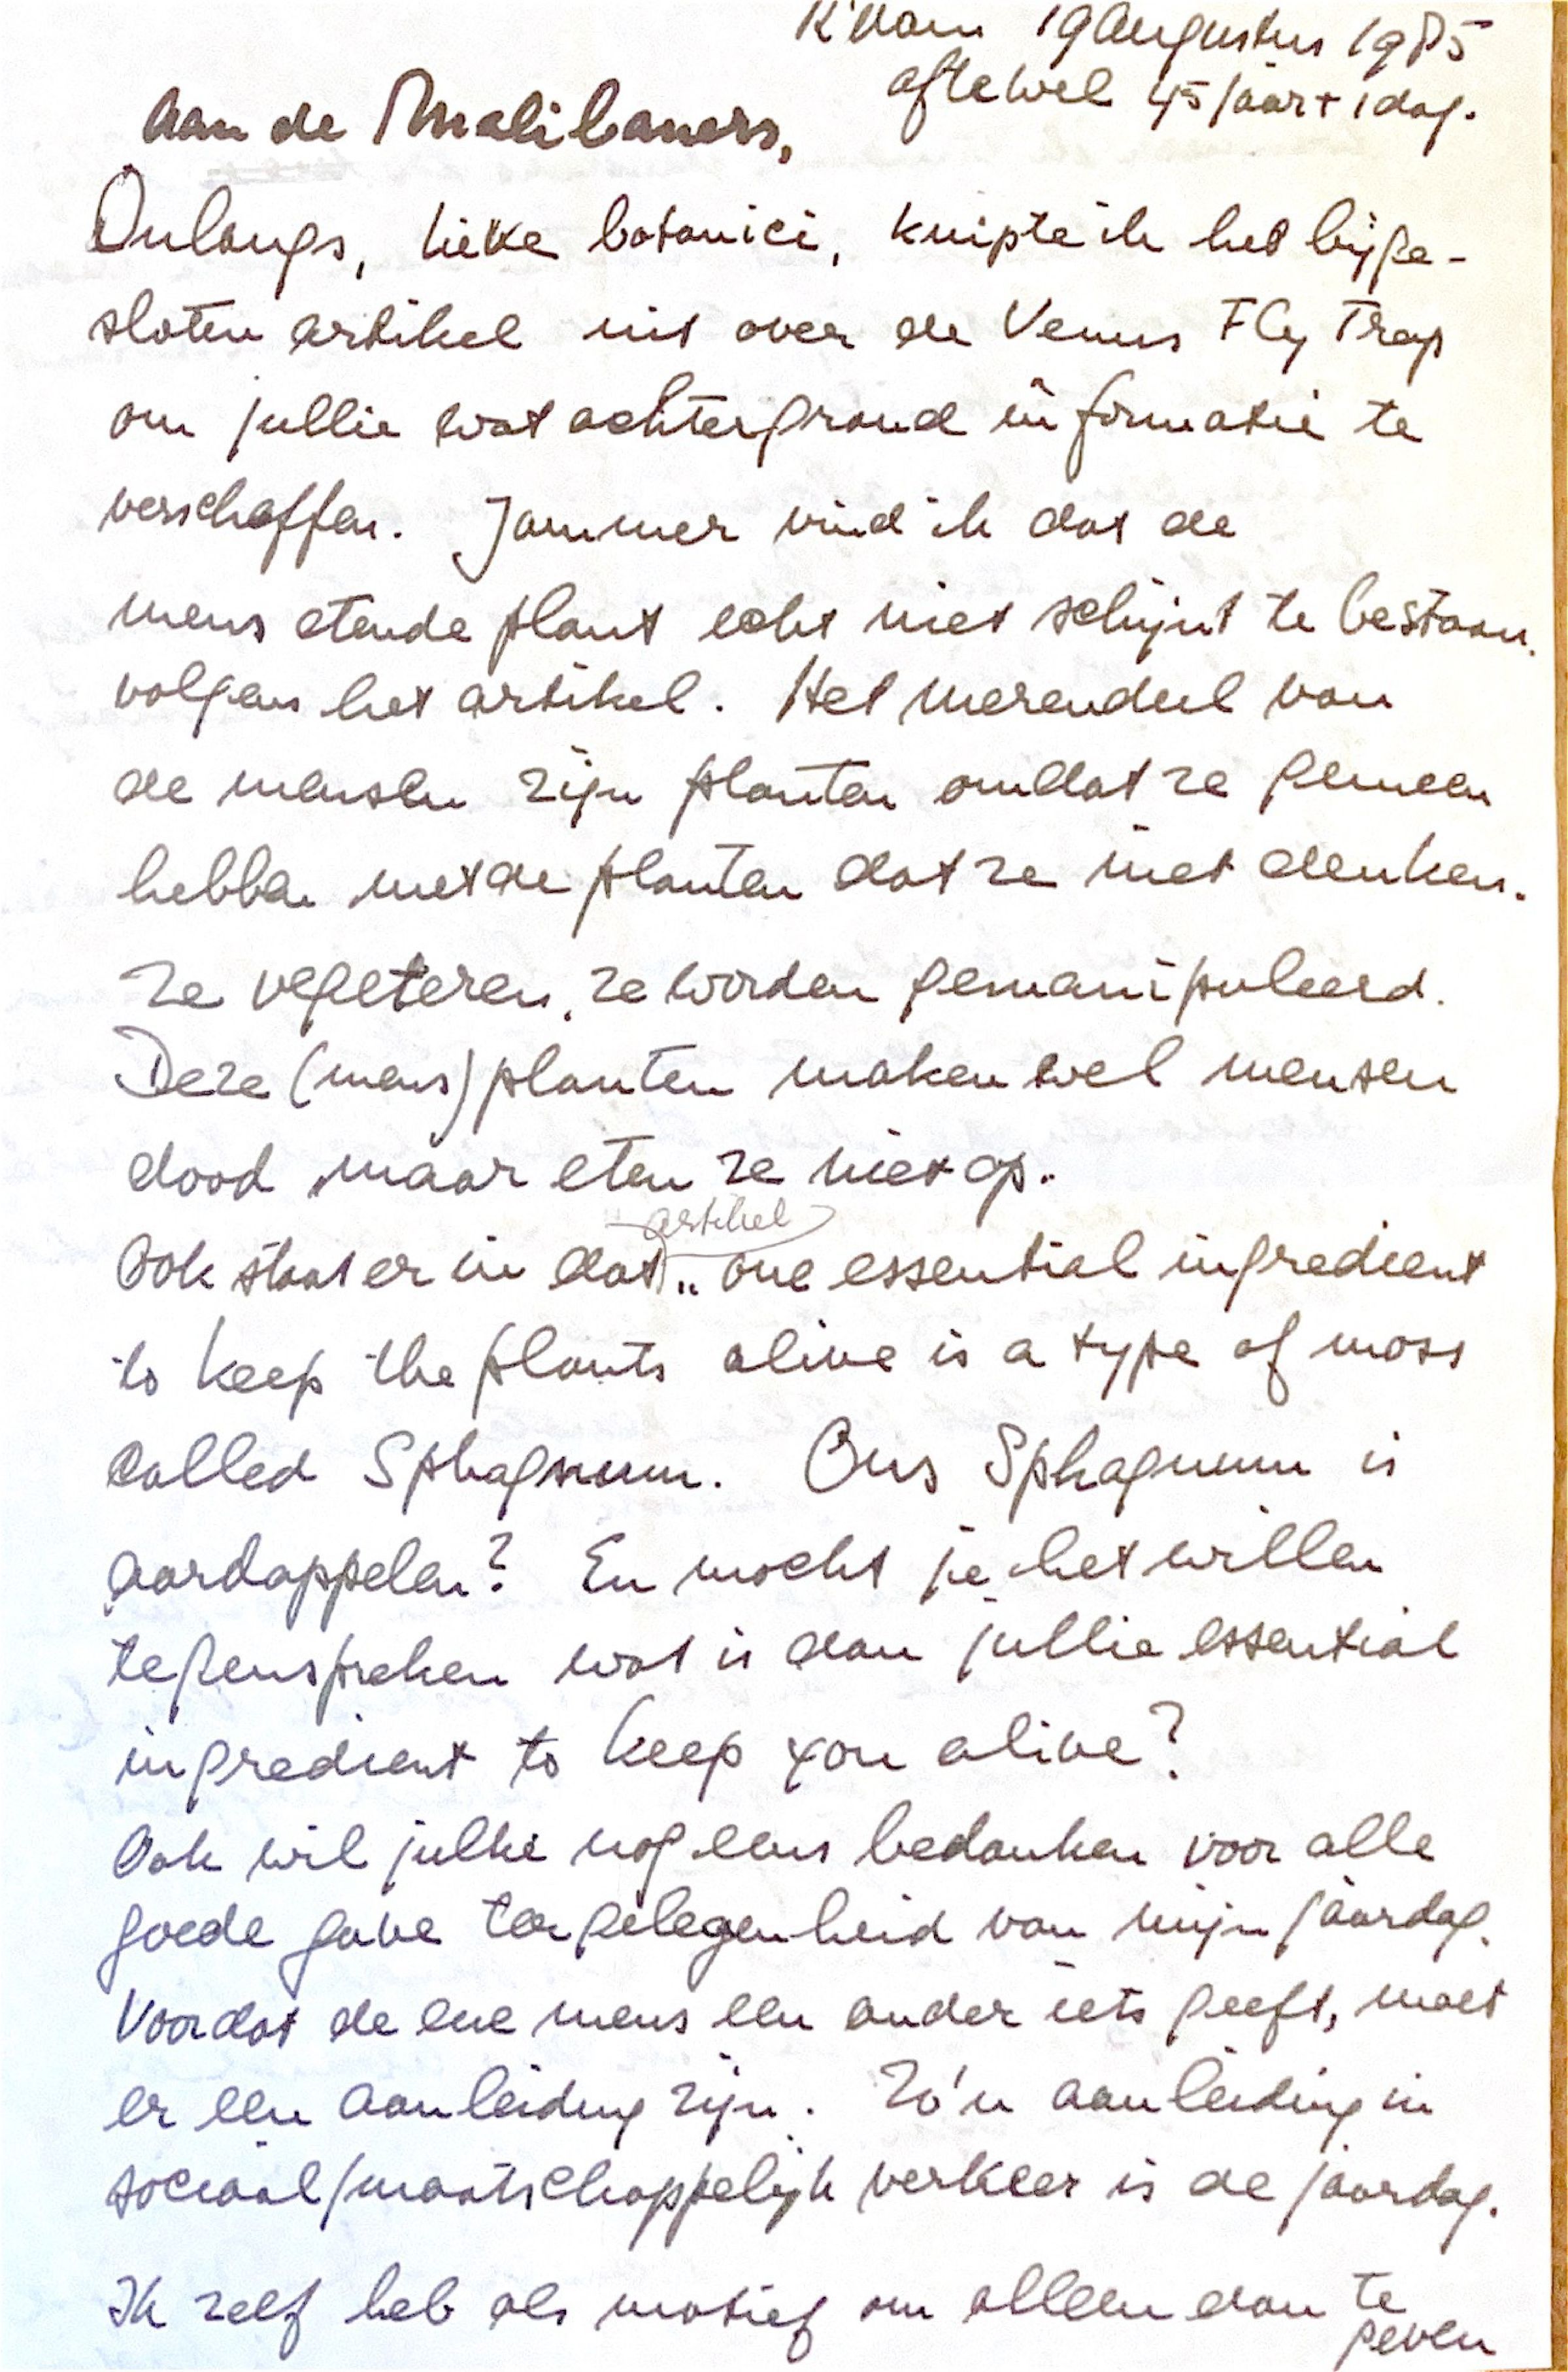 R'dam 19 Augustus 1985
oftewel 45 jaar + 1 dag.
Aan de Malibaners,
Onlangs, lieve botanici, knipte ik het bijge-
sloten artikel uit over de Venus Fly Trap
om jullie wat achtergrond informatie te
verschaffen. Jammer vind ik dat de
mens etende plant echt niet schijnt te bestaan.
volgens het artikel. Het merendeel van
de mensen zijn planten omdat ze gemeen
hebben met de planten dat ze niet denken.
Ze vegeteren, ze worden gemanipuleerd.
Deze (mens) planten maken wel mensen
dood, maar eten ze niet op.
artikel
Ook staat er in dat „ one essential ingredient
to keep the plants alive is a type of moss
called Sphagnum. Ons Sphagnum is
aardappelen? En mocht je het willen
tegenspreken wat is dan jullie essential
ingredient to keep you alive?
Ook wil jullie nog eens bedanken voor alle
goede gave ter gelegenheid van mijn jaardag.
Voordat de ene mens een ander iets geeft, moet
er een aanleiding zijn. Zo'n aanleiding in
sociaal/maatschappelijk verkeer is de jaardag.
Ik zelf heb als motief om alleen dan te
geven